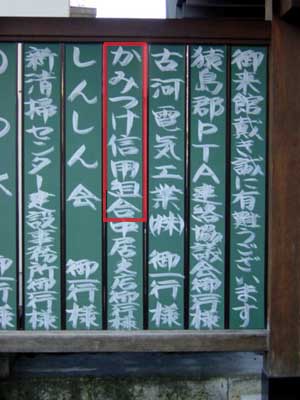 御来館戴き誠に有難うございます
猿島郡PTA連絡協議会御行様
古河電気工業㈱ 御一行様
かみつけ信用組合中居支店御行様
しんしん会 御一行様
新清掃センター建設事務所御行様